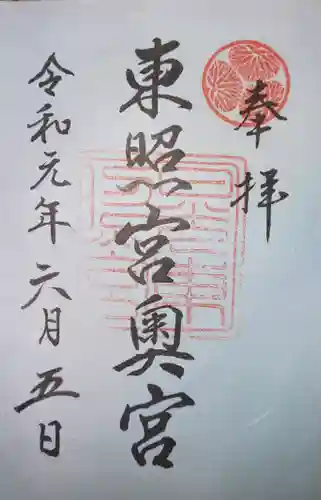 奉拝
東照宮奥宮
令和元年六月五日